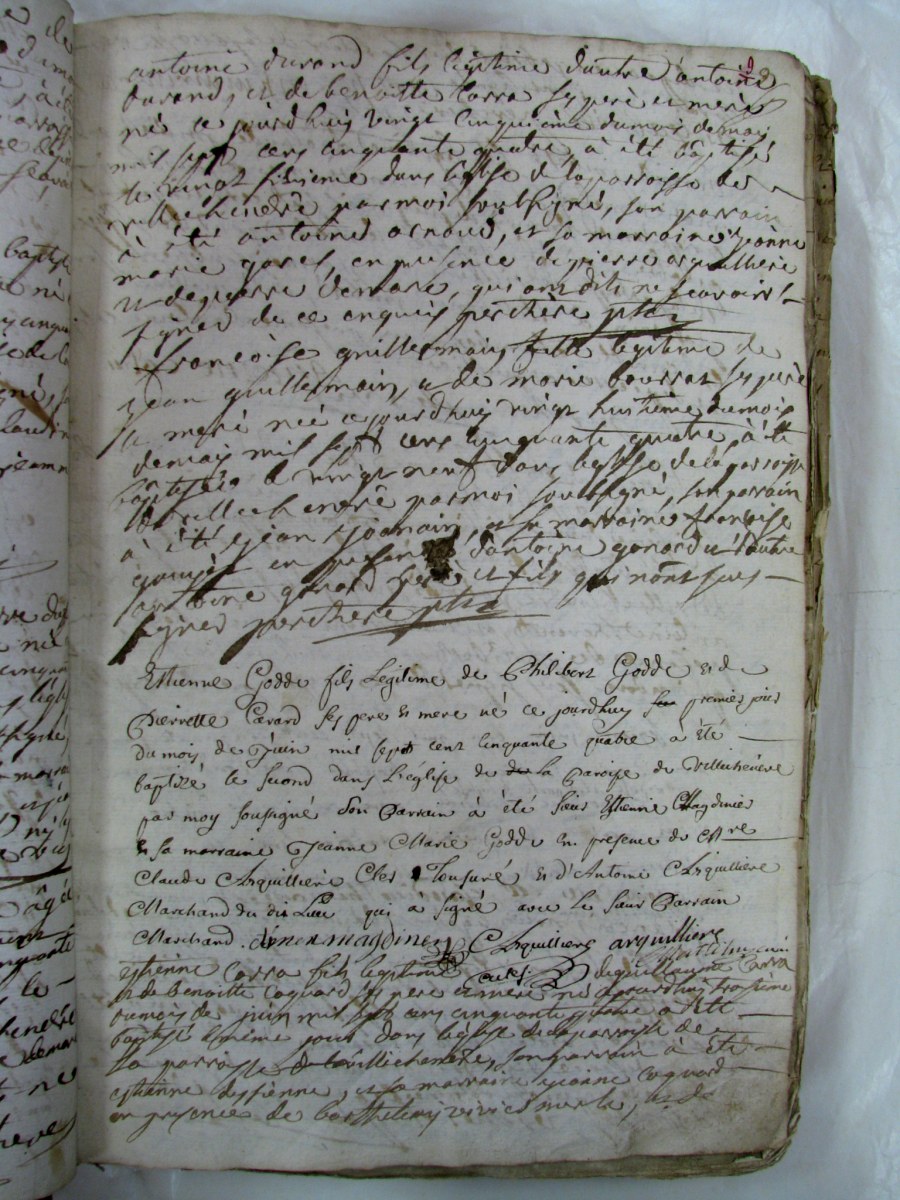 antoine durand fils legitime dautre antoine
durand, et de benoitte Carra ses pere et mere
né ce jourdhuy vingt cinquieme du mois de may
mil sept cens cinquante quatre, à été baptisé
le vingt sixieme dans leglise de la parroisse de
villechenere par moi soussigné, son parrain
à été antoine arnaud, et sa marraine jeanne
marie en presence de pierre arquilliere
et de pierre demare, qui ont dit ne scavoir
signer de ce enquis perchere ptre
françoise guillermain fille legitime de
jean guillermain, et de marie bourrat ses pere
et mere née ce jourdhuy vingt huitieme du mois
de may mil sept cens cinquante quatre à été
baptisée le vingt neuf dans leglise de la parroisse
de villechenere par moi soussigné, son parrain
à été jean guillermain, et sa marraine françoise
en presence d'antoine gonard et d'autre
antoine gonard pere et fils qui n'ont sceu
signer perchere ptre
Estienne Godde fils Legitime de Philibert Godde et de
Pierrette Cavard ses pere et mere né ce jourdhuy premier jour
du mois de Juin mil sept cent cinquante quatre a été
baptizé le second dans L'église de de la Paroisse de Villechenere
par moy sousigné Son Parrain à été sieur Estienne Magdinier
et sa marraine Jeanne Marie Godde en presence de Mre
Claude Arquilliere Clerc Tonsuré et d'Antoine Arquilliere
Marchand du dit Lieu qui à signé avec le sieur Parrain
Marchand. magdinier Arquilliere arquilliere
estienne Carra fils legitime de guillaume Carra
et de benoitte Coquard ses pere et mere né ce jourdhuy troisieme
du mois de juin mil sept cens cinquante quatre a été
baptisé le meme jour dans leglise de la parroisse de
la parroisse de villechenere, son parrain à été
estienne et sa marraine jeanne coquard
en presence de barthelemy et de